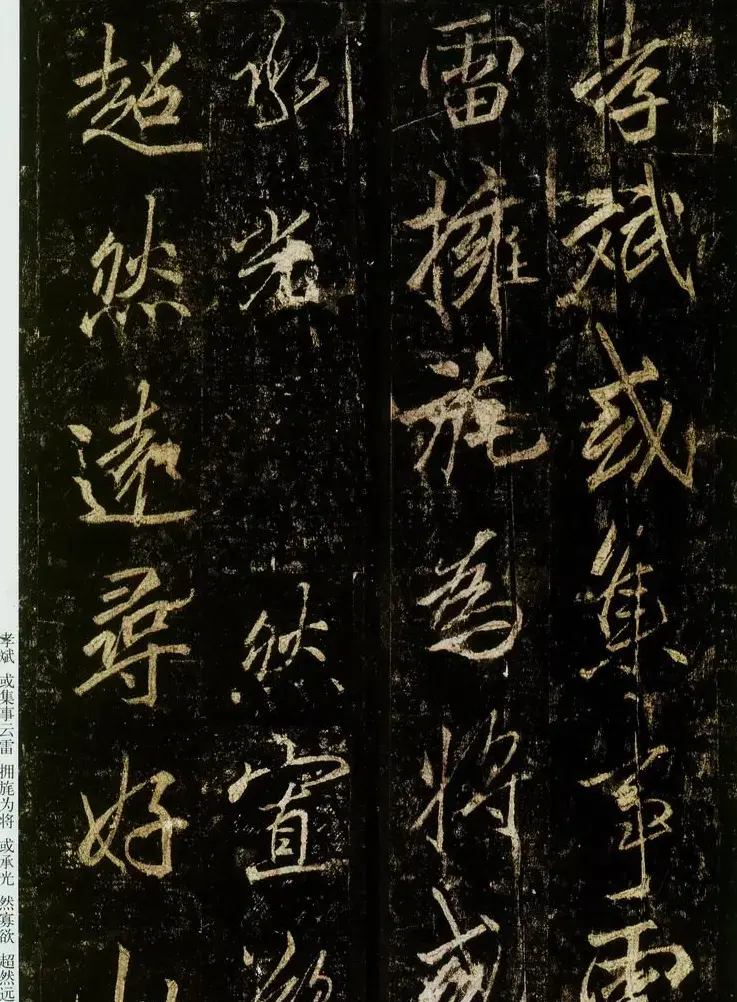 孝斌或集事雲
雷擁旄為將或
承光 然寡欲
超然遠尋好山
孝斌 或集事云雷 拥旄为将 或承光 然寡欲 超然远